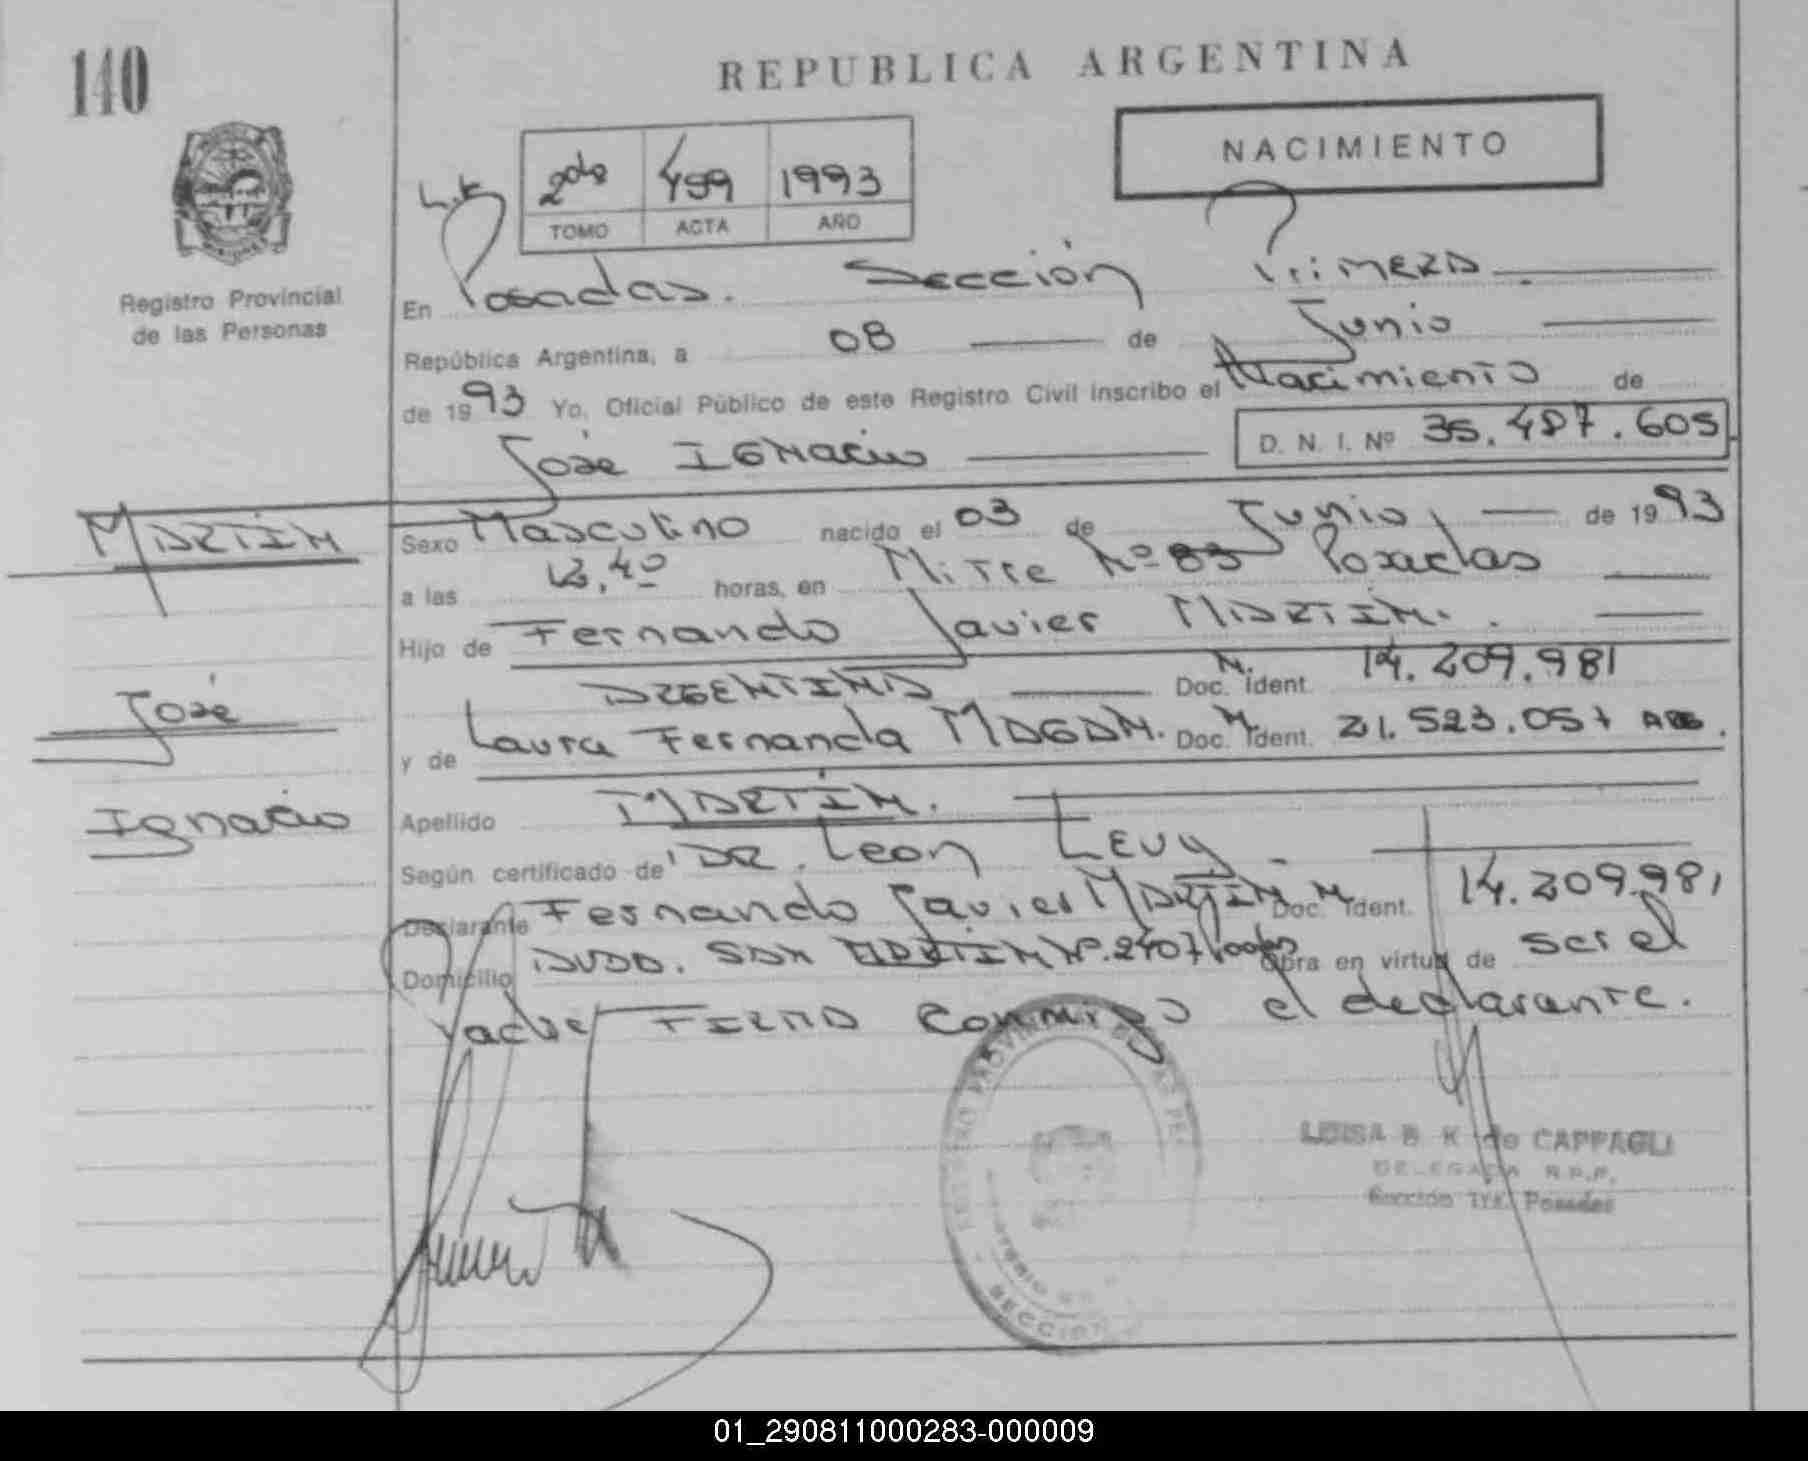 140
REPUBLICA ARGENTINA
NACIMIENTO
2do 499 1993
TOMO ACTA AÑO
Registro Provincial
de las Personas
En Posadas. Sección Primera
República Argentina, a 08 de Junio
de 1993 Yo, Oficial Público de este Registro Civil inscribo el Nacimiento de
José Ignacio D. N. I. Nº 35.487.605
MARTÍN
José
Ignacio
Sexo Masculino nacido el 03 de Junio, de 1993
a las horas, en Mitre Nº 83 Posadas
Hijo de Fernando Javier MARTÍN.
ARGENTINA Doc. N. Ident. 14.209.981
y de Laura Fernanda MAGAN. Doc. N. Ident. 21.523.057 ARG.
Apellido MARTÍN.
Según certificado de DR. Leon LEVY
Declarante Fernando Javier MARTÍN Doc. N Ident. 14.209.981
Domicilio AVDA. SAN MARTÍN Nº 2407 Posadas Obra en virtud de ser el
Padre FIRMA Conmigo el declarante.
LUISA B K de CAPPAGLI
DELEGADA R.P.P.
Sección 1ra. Posadas
SECCION
01_290811000283-000009